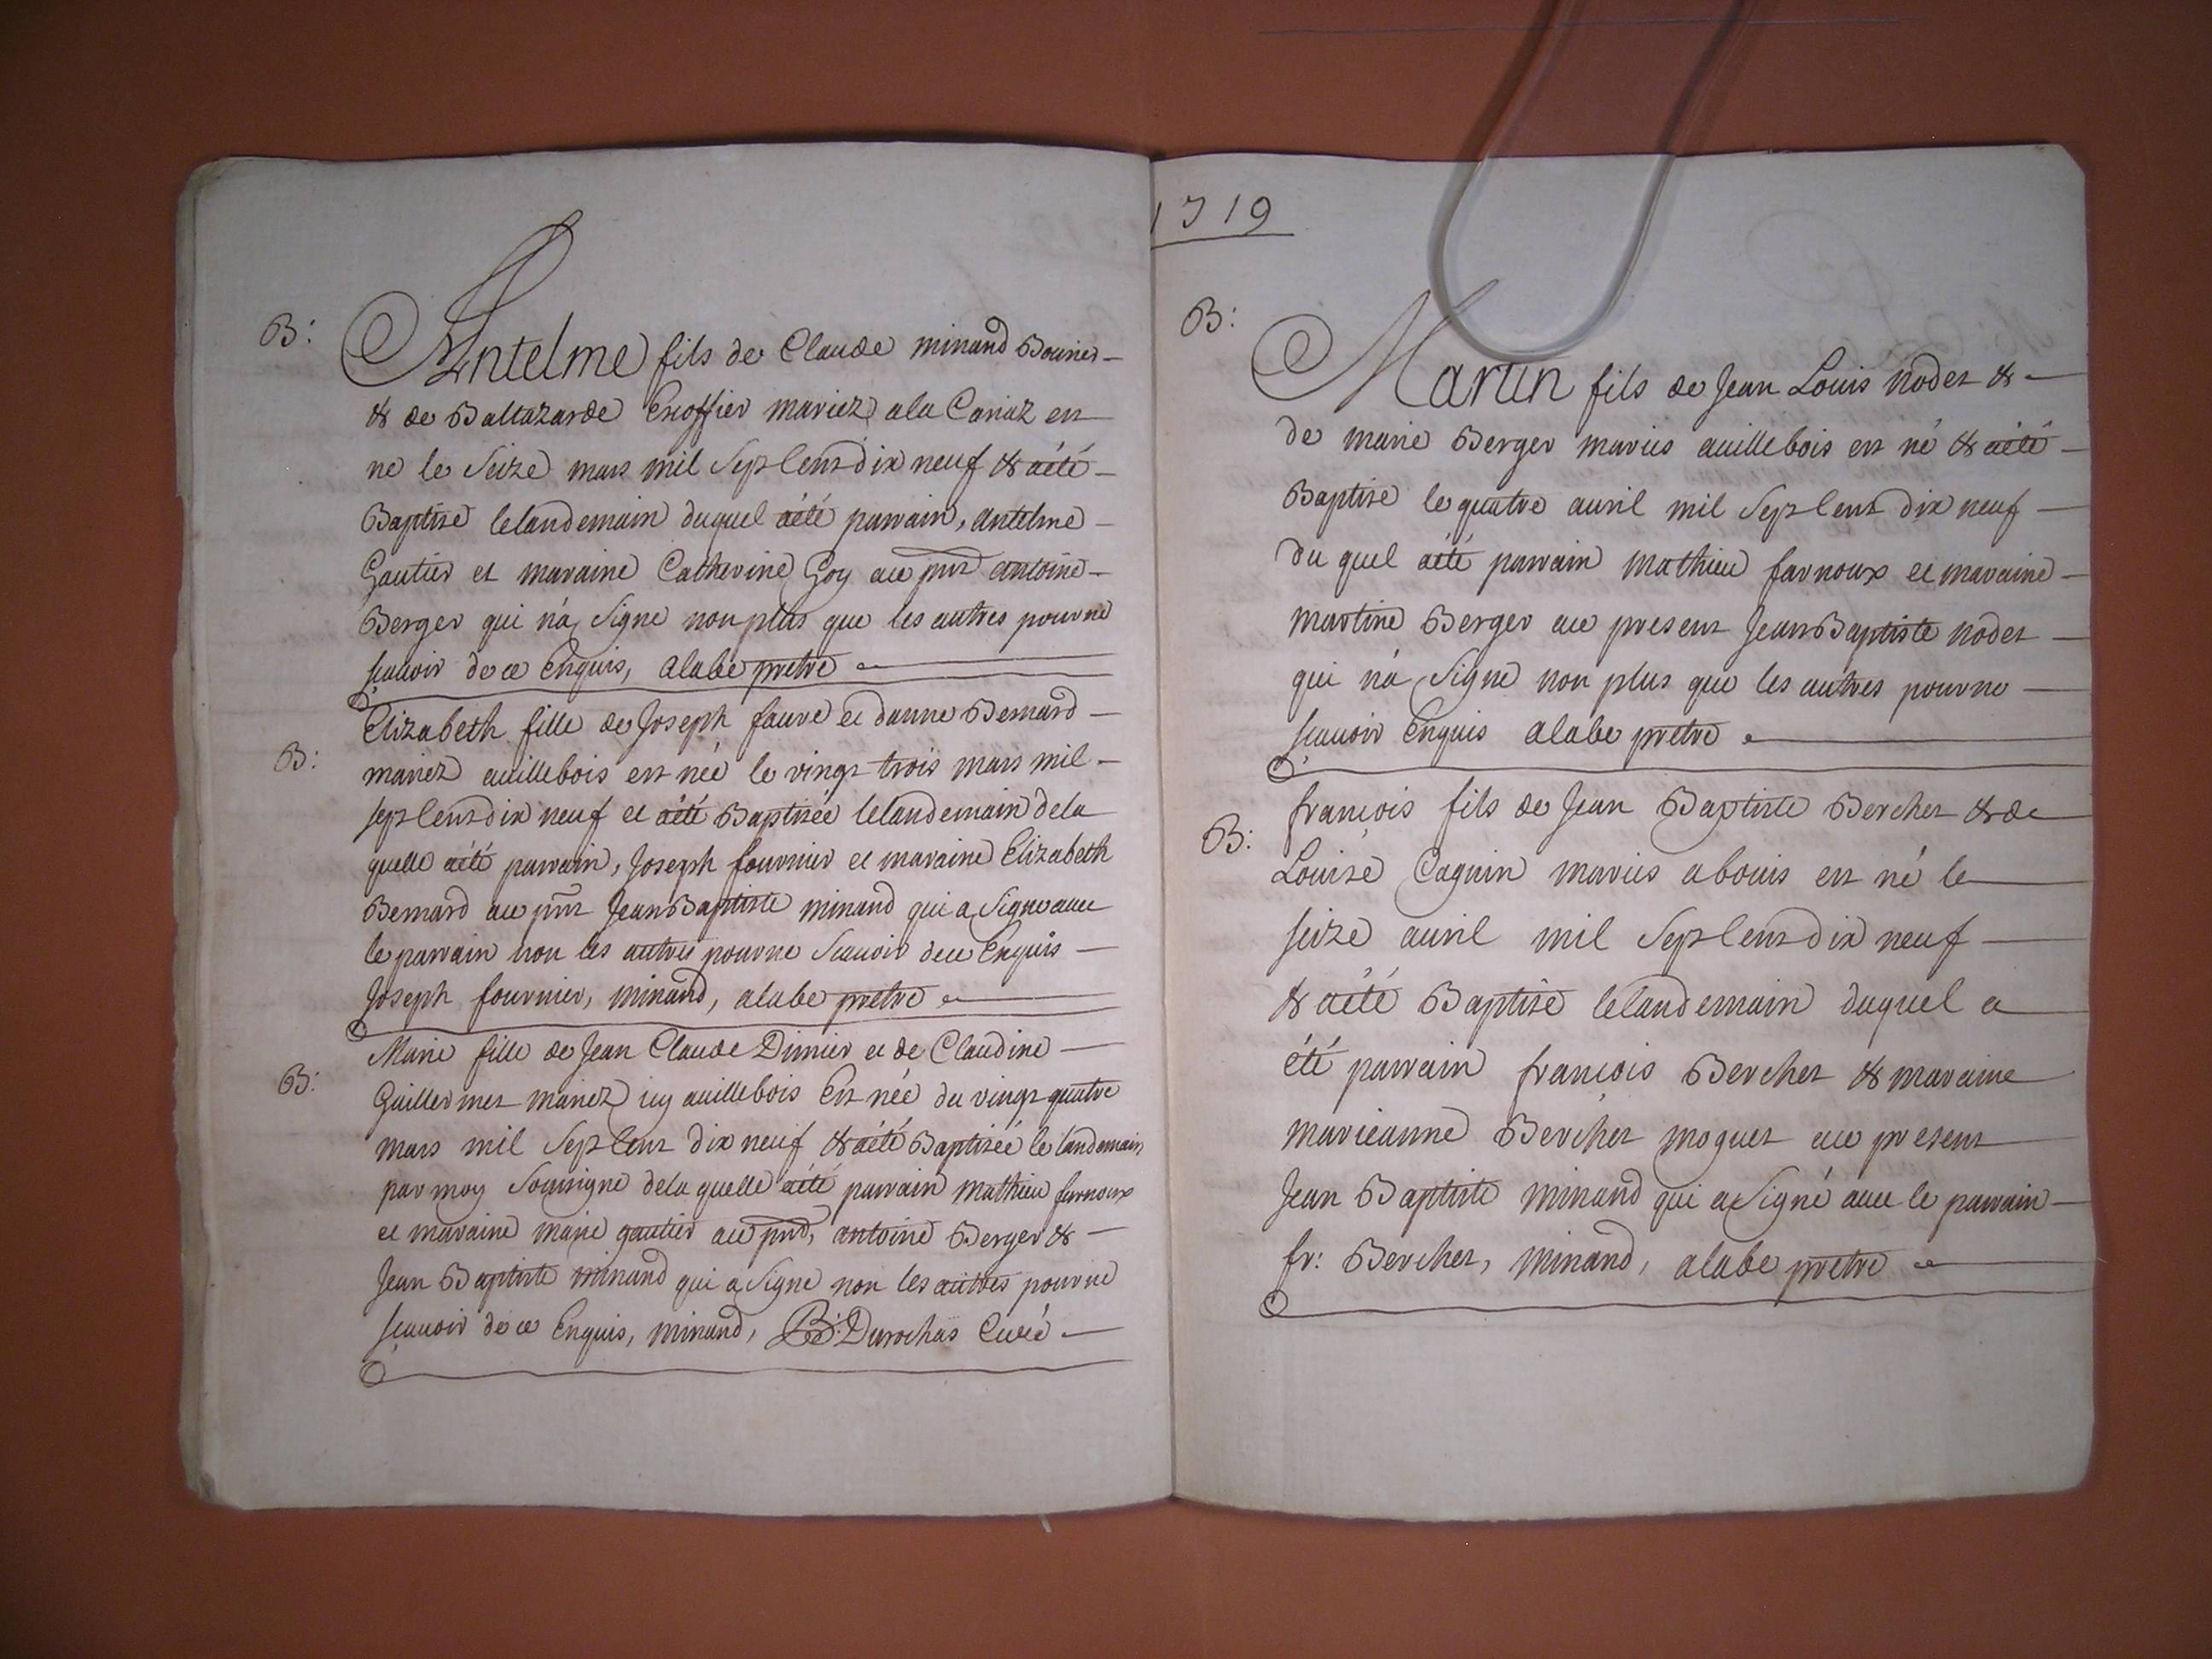 B: Antelme fils de Claude minand Bouvier
& de Baltazarde Exoffier mariez ala Cariaz est
ne le seize mars mil sept cent dix neuf & aété
Baptisé lelandemain duquel aété parrain, antelme
Gautier et maraine Catherine Goy au pnt antoine
Berger qui n'a signe non plus que les autres pour ne
scauoir de ce Enquis, alabe pretre
B: Elizabeth fille de Joseph faure et danne Bernard
mariez auillebois est née le vingt trois mars mil
sept cent dix neuf et aété Baptisée lelandemain dela
quelle aété parrain, Joseph fournier et maraine Elizabeth
Bernard au pnt Jean Baptiste minand qui a signe auec
le parrain non les autres pour ne scauoir dece Enquis
Joseph fournier, minand, alabe pretre
B: Marie fille de Jean Claude Dimier et de Claudine
Guillermet mariez icy auillebois Est née du vingt quatre
mars mil sept cent dix neuf & aété Baptisée le landemain
par moy soussigne dela quelle aété parrain mathieu farnoux
et maraine marie gautier au pnt, antoine Berger &
Jean Baptiste minand qui a signe non les autres pour ne
scauoir de ce Enquis, minand, B: Durochas Curé
1719
B: Martin fils de Jean Louis nodet &
de marie Berger mariés auillebois est né & aété
Baptise le quatre auril mil sept cent dix neuf
du quel aété parrain mathieu farnoux et maraine
martine Berger au present Jean Baptiste nodet
qui n'a signe non plus que les autres pour ne
scauoir Enquis alabe pretre
B: francois fils de Jean Baptiste Berchet & de
Louise Caguin mariés abouis est né le
seize auril mil sept cent dix neuf
& aété Baptisé lelandemain duquel a
été parrain francois Berchet & maraine
marieanne Berchet moguet au present
Jean Baptiste minand qui a signé auec le parrain
fr: Berchet, minand, alabe pretre